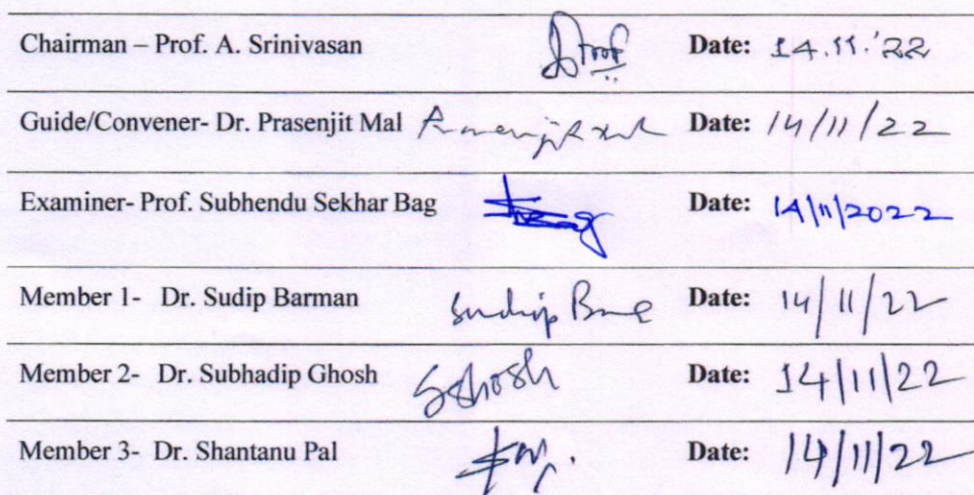 Chairman – Prof. A. Srinivasan Date: 14.11.'22
Guide/Convener- Dr. Prasenjit Mal Date: 14/11/22
Examiner- Prof. Subhendu Sekhar Bag Date: 14/11/2022
Member 1- Dr. Sudip Barman Sudip Date: 14/11/22
Member 2- Dr. Subhadip Ghosh SGhosh Date: 14/11/22
Member 3- Dr. Shantanu Pal Date: 14/11/22